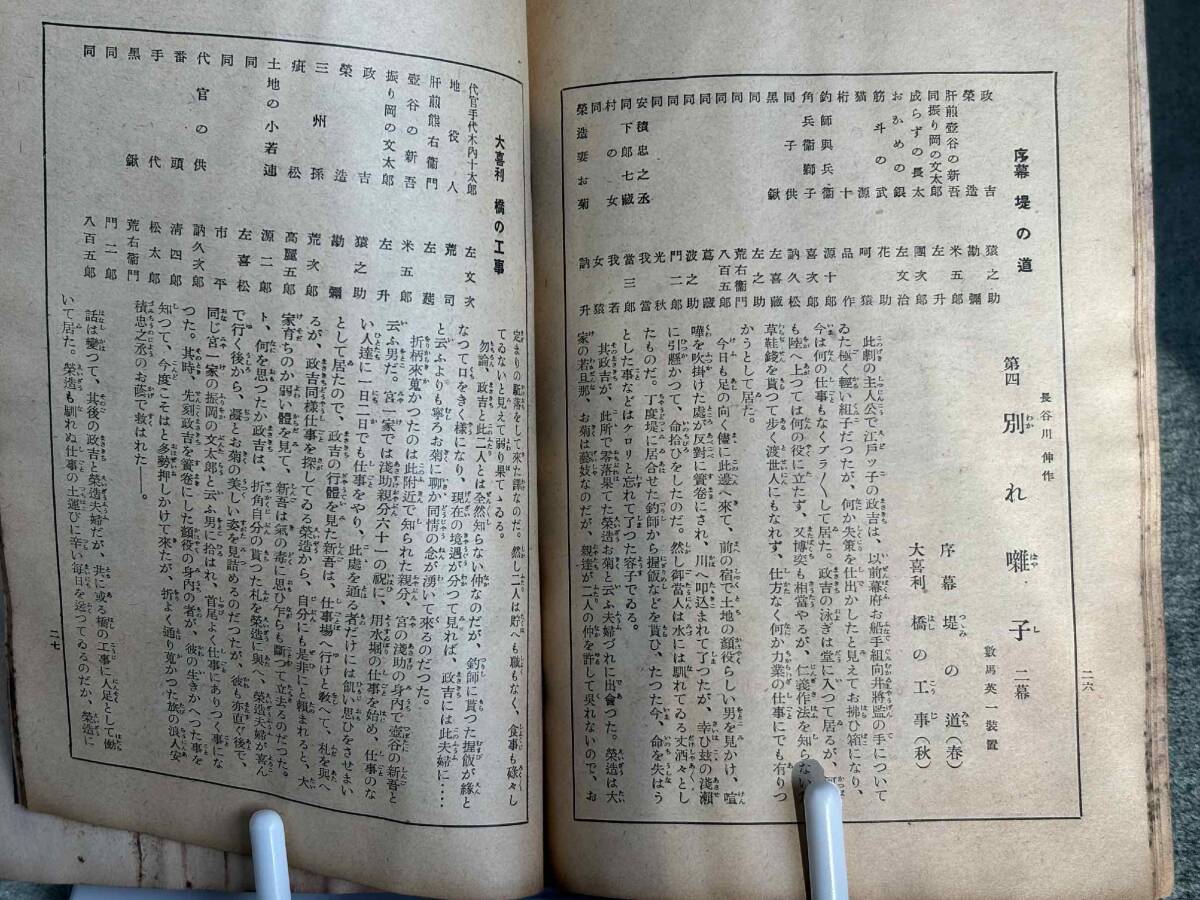 二六
第四 別れ囃子 二幕
長谷川伸作
數馬英一裝置
序幕 堤の道(春)
大喜利 橋の工事(秋)
此劇の主人公で江戸ッ子の政吉は、以前幕府お船手組向井將監の手について
ゐた極く輕い組子だつたが、何か失策を仕出かしたと見えてお拂ひ箱になり、
今は何の仕事もなくブラ〱して居た。政吉の泳ぎは堂に入つて居るが、
も陸へ上つては何の役に立たず、又博突も相當やるが、仁義作法を知らない
草鞋錢を貰つて歩く渡世人にもなれず、仕方なく何か力業の仕事にでも有りつ
かうとして居た。
今日も足の向く儘に此邊へ來て、前の宿で土地の顏役らしい男を見かけ、喧
嘩を吹掛けた處が反對に簀卷にされ、川へ叩込まれて了つたが、幸ひ玆の淺瀨
に引懸かつて、命拾ひをしたのだ。然し御當人は水には馴れてゐる丈洒々とし
たものだ。丁度堤に居合せた釣師から握飯などを貰ひ、たつた今、命を失はう
とした事などはケロリと忘れて了つた容子でゐる。
其政吉が、此所で零落果てた榮造お菊と云ふ夫婦づれに出會つた。榮造は大
家の若旦那、お菊は藝妓なのだが、親達が二人の仲を許して吳れないので、お
序幕 堤の道
政吉 猿之助
榮造 勘彌
肝煎壺谷の新吾 米五郎
同振り岡の文太郎 左升
成らずの長太 團次郎
おかめの銀 左文治
筋斗の武 花助
猫源 呵猿
桁十 品作
釣師興兵衞 源十郎
角兵衞獅子 喜次郎
同子供 訥久松
黑鍬 左喜藏
同 左之助
同 荒右衞門
同 八百五郎
同 蔦藏
同 波之助
同 門二郎
同 光秋
安積忠之丞 我當
同下郎七藏 當三郎
村の女 我若
同 猿女
榮造妻お菊 訥升
定まりの駈落をして來た譯なのだ。然し二人は貯へも職もなく、食事も碌々し
てゐないと見えて弱り果てゝゐる。
勿論、政吉と此二人とは全然知らない仲なのだが、釣師に貰つた握飯が緣と
なつて口をきく樣になり、現在の境遇が分つて見れば、政吉には此夫婦に‥‥
と云ふよりも寧ろお菊に聊か同情の念が湧いて來るのだつた。
折柄來蒐かつたのは此附近で知られた親分、宮の淺助の身内で壺谷の新吾と
云ふ男だ。宮一家では淺助親分六十一の祝に、用水堀の仕事を始め、仕事のな
い人達に一日二日でも仕事をやり、此處を通る者だけには飢い思ひをさせまい
として居たので、政吉の行體を見た新吾は、仕事場へ行けと敎へて、札を與へ
るが、政吉同樣仕事を探してゐる榮造から、自分にも是非にと賴まれると、大
家育ちのか弱い體を見て、新吾は氣の毒に思ひ乍らも斷つて立去るのだつた。
ト、何を思つたか政吉は、折角自分の貰つた札を榮造に與へ、榮造夫婦が喜ん
で行く後から、凝とお菊の美しい姿を見詰めるのだつたが、彼も亦直ぐ後で、
同じ宮一家の振岡の文太郎と云ふ男に拾はれ、首尾よく仕事にありつく事にな
つた。其時、先刻政吉を簀卷にした顏役の身内の者が、彼の生きかへつた事を
知つて、今度こそはと多勢押しかけて來たが、折よく通り蒐かつた旅の浪人安
積忠之丞のお蔭で救はれた――。
話は變つて、其後の政吉と榮造夫婦だが、共に或る橋の工事に人足として働
いて居た。榮造も馴れぬ仕事の土運びに辛い每日を送つてゐるのだか、榮造に
大喜利 橋の工事
代官手代木内十太郎 左文次
地役人 荒司
肝煎熊右衞門 左莚
壺谷の新吾 米五郎
振り岡の文太郎 左升
政吉 猿之助
榮造 勘彌
三州孫 荒次郎
疵松 高麗五郎
土地の小若連 源二郎
同 左喜松
同 市平
代官の供 訥久次郎
番頭 清四郎
手代 松太郎
黑鍬 荒右衞門
同 門二郎
同 八百五郎
二七